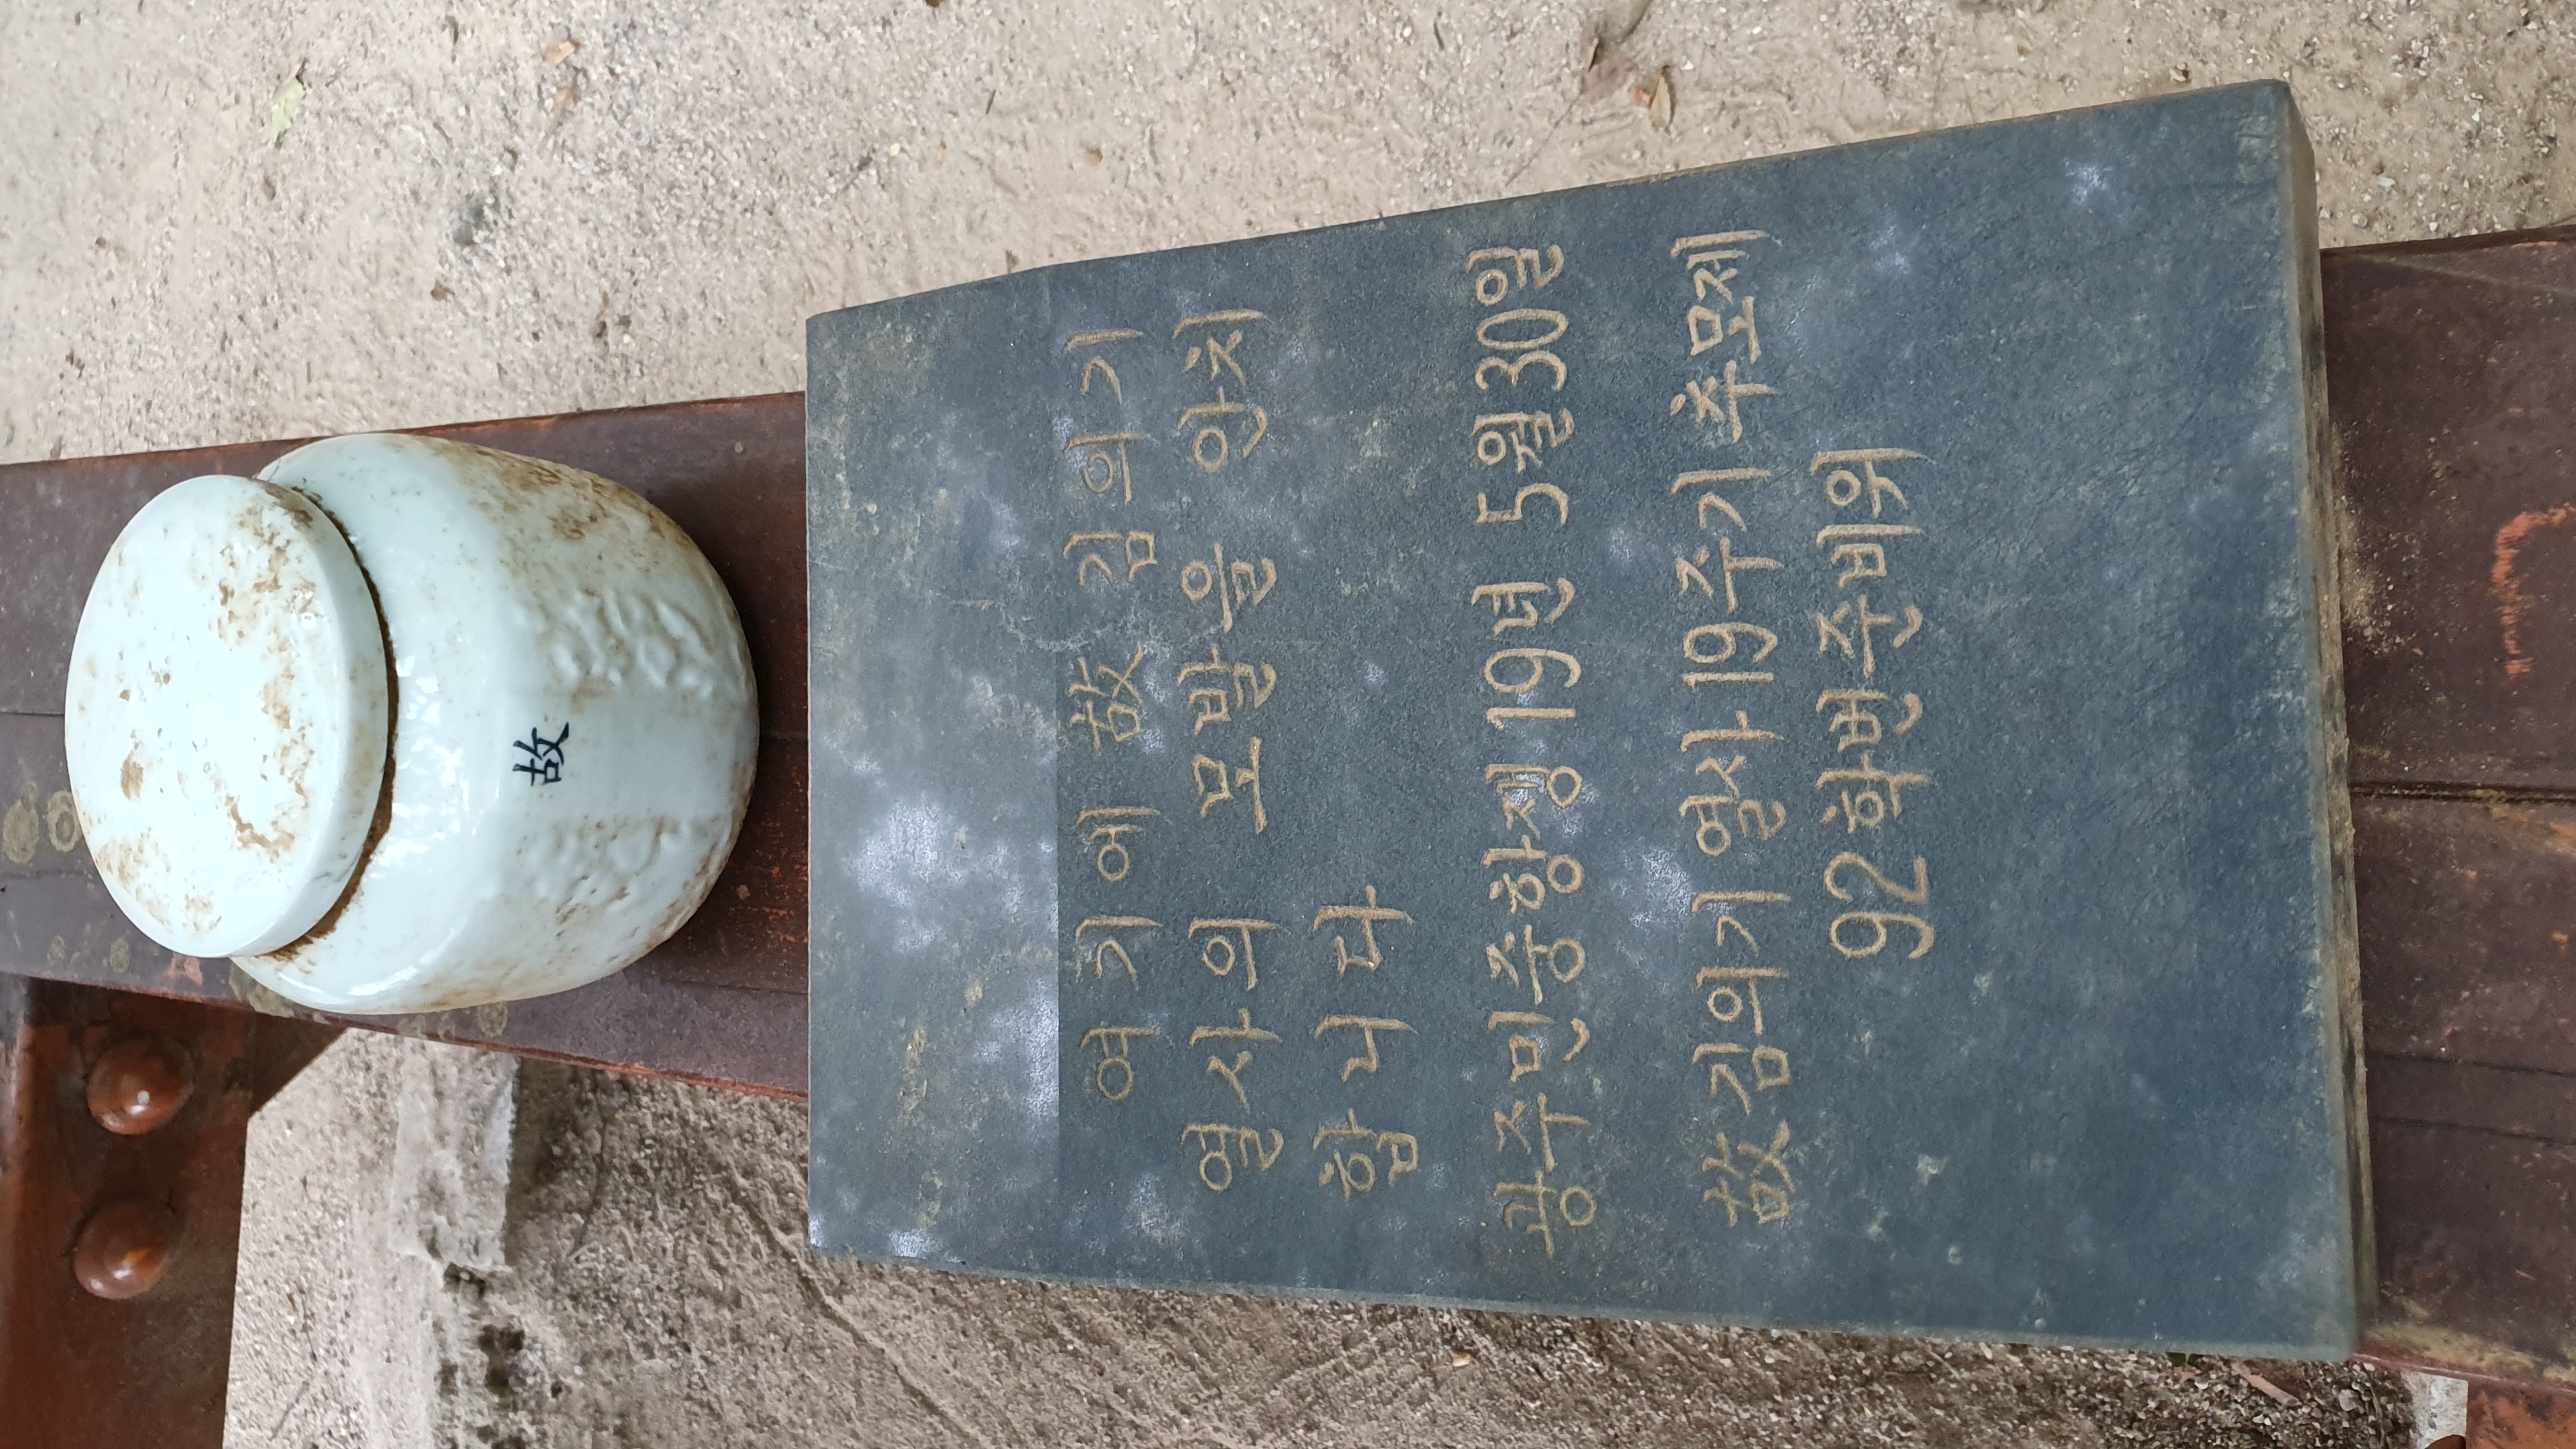 故
여기에 故 김의기
열사의 모발을 안치
합니다
광주민중항쟁 19년 5월 30일
故김의기 열사 19주기 추모제
92학번준비위